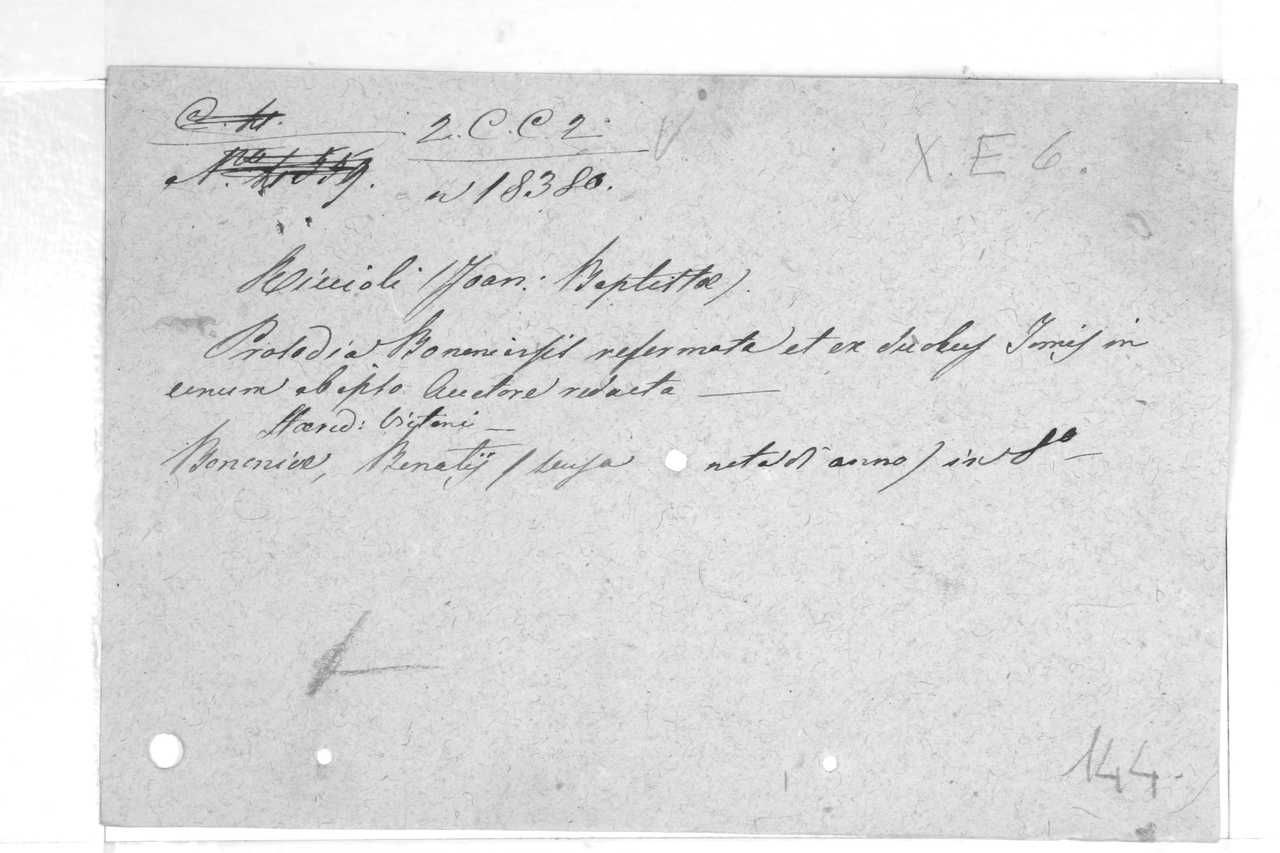 2. C. C. 2.
X. E 6.
n 18380.
Riccioli (Joan: Baptistæ).
Prosodia Bononiensis reformata et ex duobus Tomis in
unum ab ipso Auctore redacta —
Hæred: Victorii —
Bononiæ, Benatij (senza nota di anno) in 8º —
144.